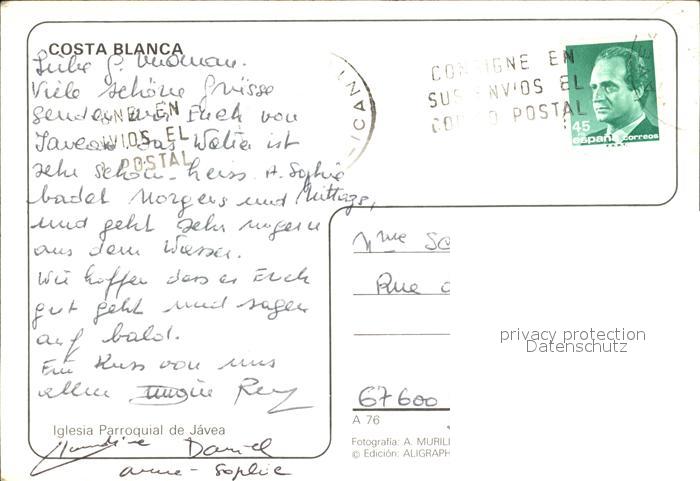 COSTA BLANCA
Liebe G.
Viele schöne Grüsse
senden wir Euch von
Javea. Das Wetter ist
sehr schön - heiss. A. Sophie
badet Morgens und Mittags,
und geht sehr ungern
aus dem Wasser.
Wir hoffen dass es Euch
gut geht und sagen
auf bald.
Ein Kuss von uns
allen
Iglesia Parroquial de Jávea
Daniel
Anne - Sophie
ONE EN
VIOS EL
POSTAL
ICAN
CONSIGNE EN
SUS ENVIOS EL
CODIGO POSTAL
45
españa correos
Mme
Rue
67600
A 76
Fotografía: A. MURILL
© Edición: ALIGRAPH
privacy protection
Datenschutz